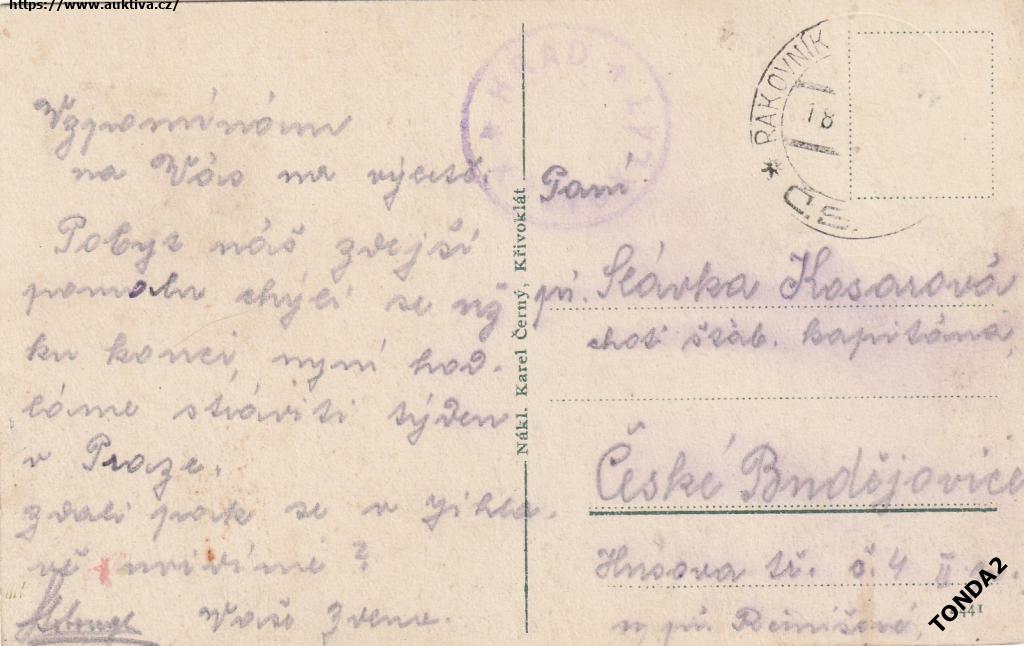 https://www.auktiva.cz/
Vzpomínám
na Vás na výletě.
Pobyt náš zdejší
pomalu chýlí se již
ku konci, nyní hod-
láme stráviti týden
v Praze.
zdali pak se v Jihla-
vě uvidíme?
Vaše Zdena.
Nákl. Karel Černý, Křivoklát
HRAD
RAKOVNÍK
18
Paní
pí. Slávka Kosarová
choť štáb. kapitána,
České Budějovice
Husova tř. č. 4 II
u pí
441
TONDA2